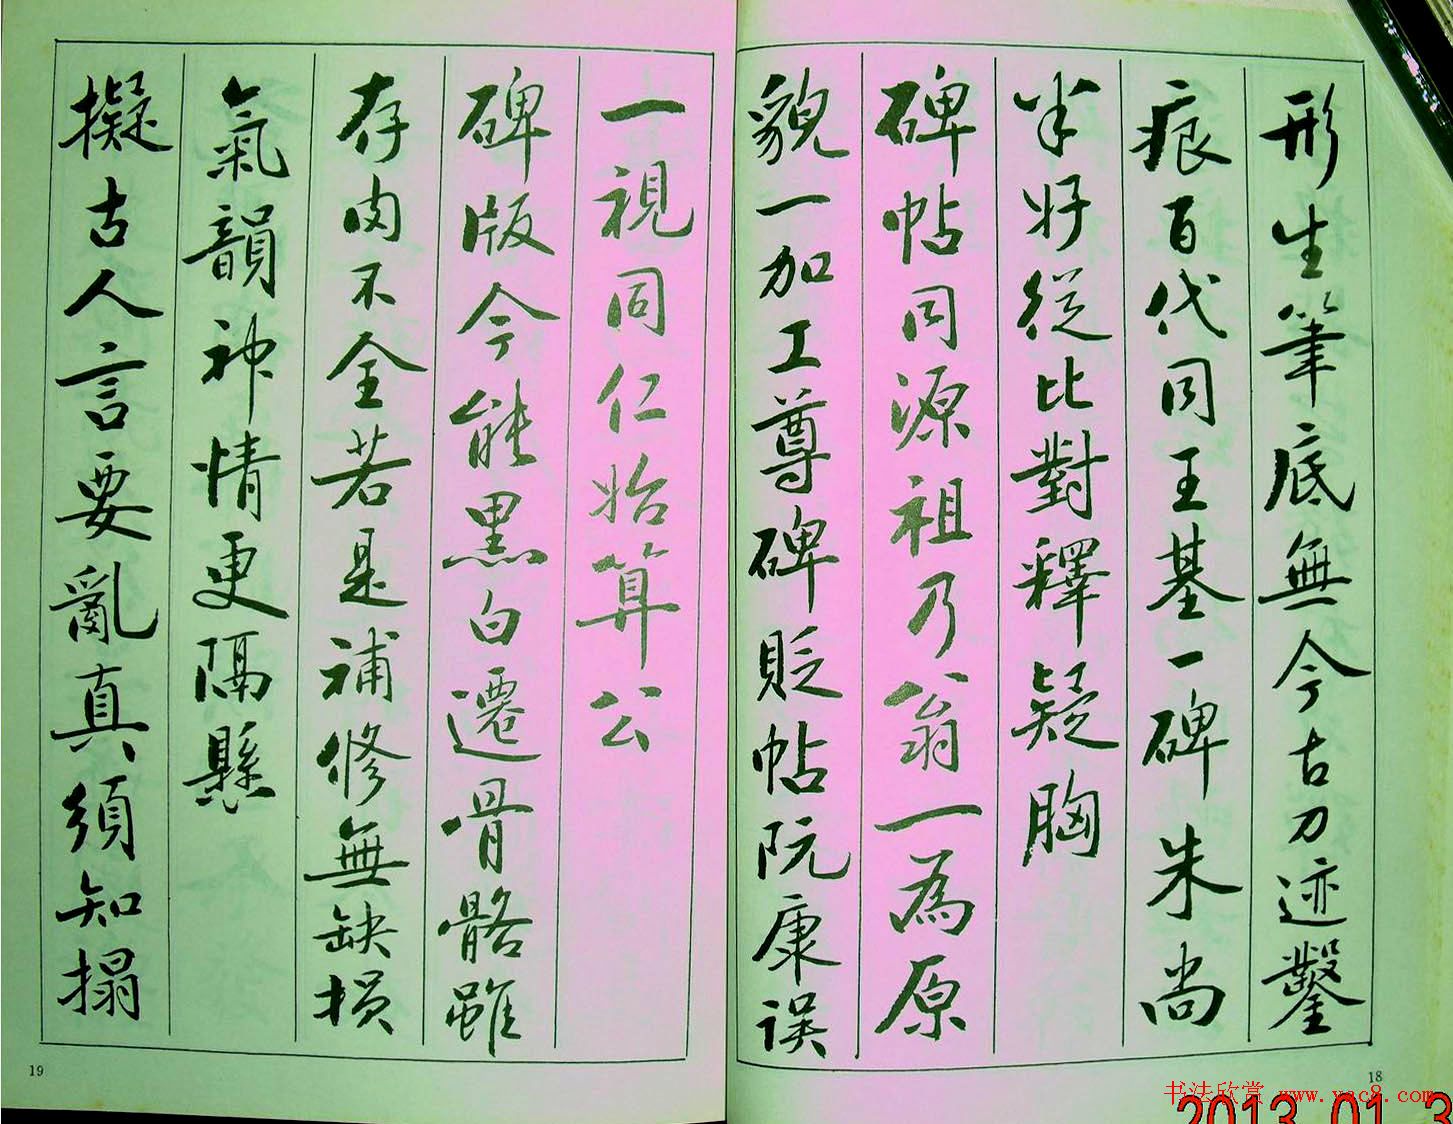 形生筆底無今古刀迹鑿
痕百代同王基一碑朱尚
半好從比對釋疑胸
碑帖同源祖乃翁一為原
貌一加工尊碑貶帖阮康误
一視同仁始算公
碑版今能黑白遷骨骼雖
存肉不全若是補修無缺损
氣韻神情更隔懸
擬古人言要亂真須知搨
18
19
书法欣赏 www.yac8.com
2013 01 3